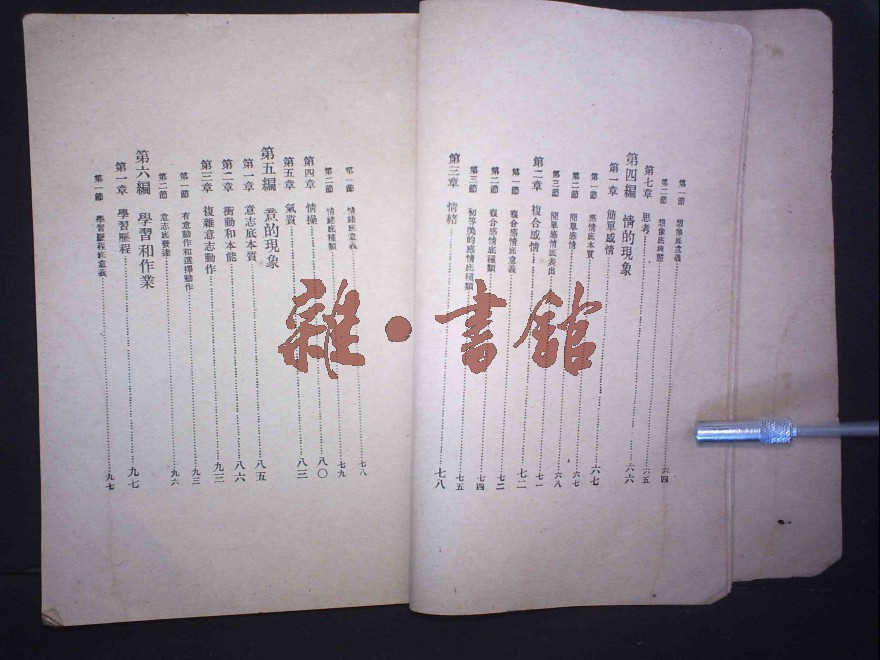 第一節 想像底意義……六四
第二節 想像底與態……六五
第七章 思考……六五
第四編 情的現象
第一章 簡單感情……六六
第一節 感情底本質……六七
第二節 簡單感情……六七
第三節 簡單感情底表出……六八
第二章 複合感情……七一
第一節 複合感情底意義……七二
第二節 複合感情底種類……七二
第三節 初等美的感情底種類……七四
第三章 情緒……七八
第一節 情緒底意義……七八
第二節 情緒底種類……七九
第四章 情操……八〇
第五章 氣質……八三
第五編 意的現象
第一章 意志底本質……八五
第二章 衝動和本能……八六
第三章 複雜意志動作……九三
第一節 有意動作和選擇動作……九三
第二節 意志底發達……九六
第六編 學習和作業
第一章 學習歷程……九七
第一節 學習歷程底意義……九七
雜·書館